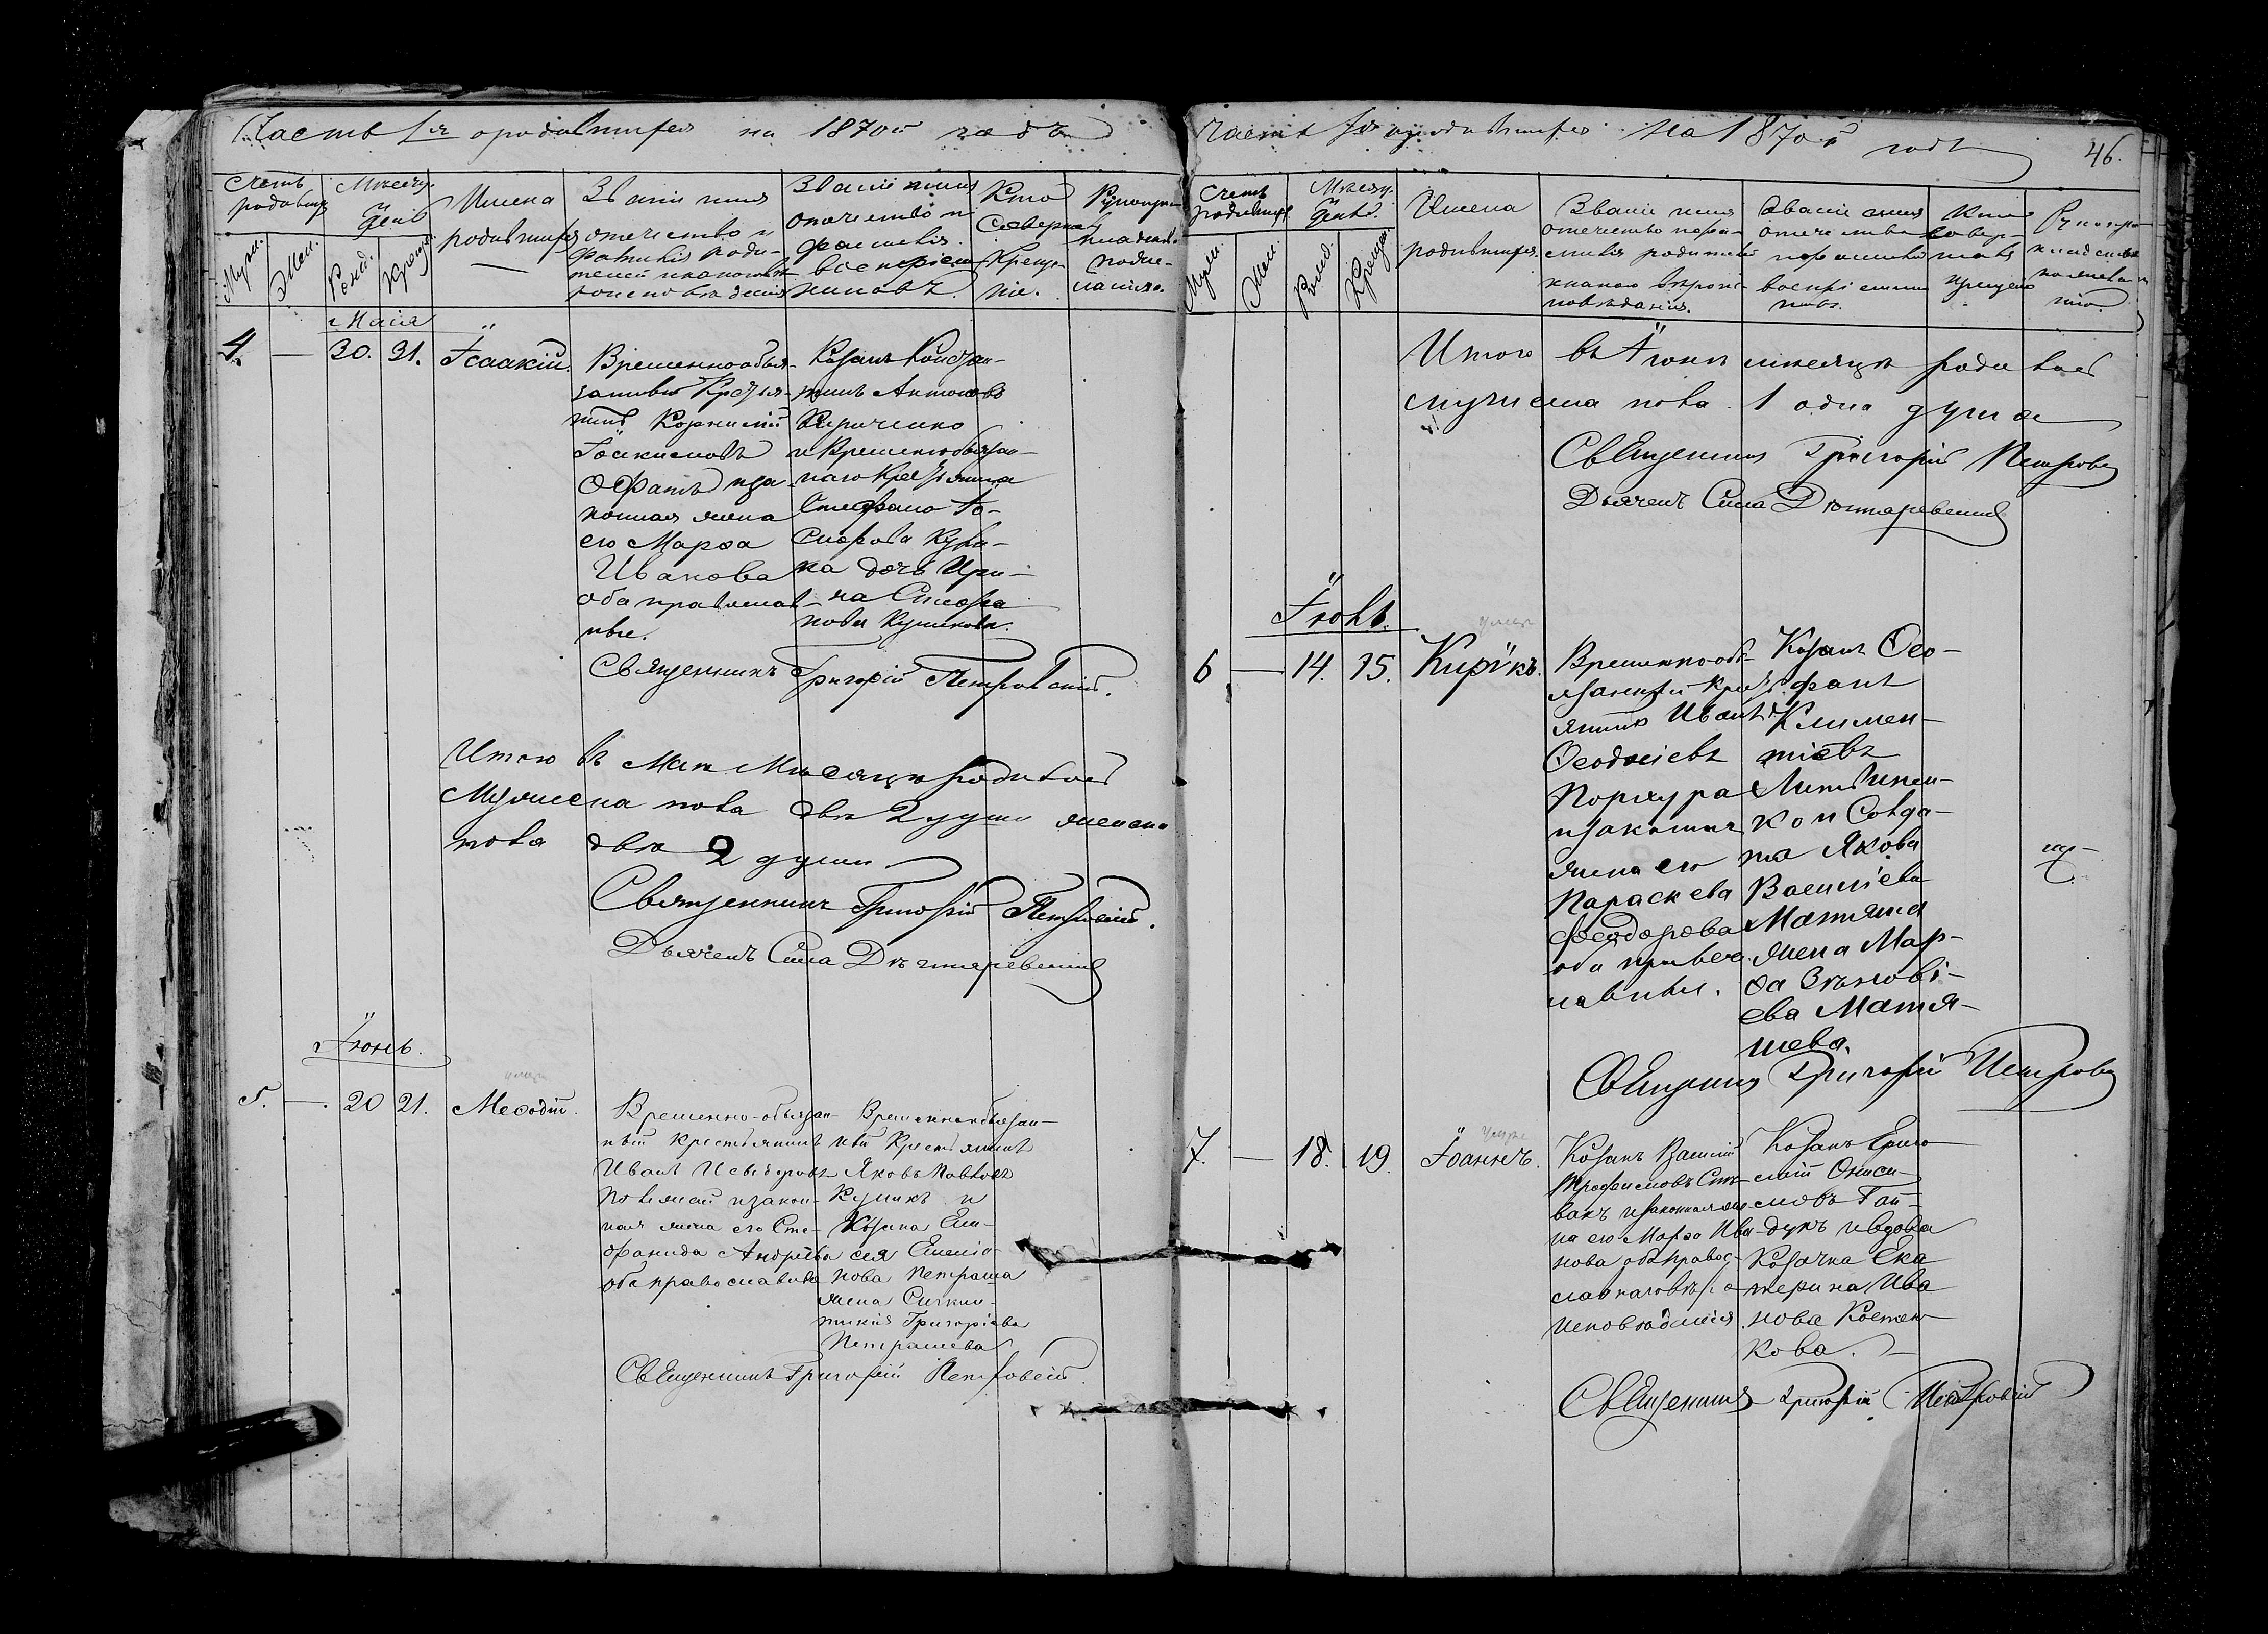 Часть 1я о родившихся на 1870й годъ
Счетъ родивш.
Муж.
Жен.
Мѣсяцъ и день
Рожд.
Крещен.
Имена
родившихся
Званіе имя
отечество и
фамилія роди-
телей и какого вѣ-
роисповѣданія
Званіе имя
отечество и
фамилія
воспріем-
никовъ.
Кто
совершалъ
креще-
ніе.
Рукопри-
кладств.
Маія
4. — 30. 31. Ісаакій.
Временнообя-
занный Крестья-
нинъ Корнилій
Іоакимовъ
и за-
конная жена
его Марѳа
Иванова
оба православ-
ные.
Козакъ Констан-
тинъ Антоновъ
Кириченко
и Временнообязан-
наго Крестьянина
Стефана
Кули-
ка дочь Ири-
на Стефа
нова Куликова.
Священникъ Григорій Петровскій.
Итого въ Маѣ Мѣсяцѣ родилось
Мужеска пола двѣ 2 души женска
пола двѣ 2 души
Священникъ Григорій Петровскій.
Дьячекъ Сила Дѣхтяревскій
Іюнь.
умер
5. — 20 21. Меѳодій.
Временно-обязан-
ный крестьянинъ
Иванъ
и закон-
ная жена его Сте-
фанида Андреева
оба православные
Временнообязан-
ный Крестьянинъ
Яковъ Павловъ
Куликъ и
Козака Ели-
сея
нова Петраша
жена
Григоріева
Петрашева
Священникъ Григорій Петровскій
Часть 1я о родившихся на 1870й годъ
46.
Счетъ
родивших.
Муж.
Жен.
Мѣсяцъ
День.
Рожд.
Крещен.
Имена
родившихся.
Званіе имя
отечество и фа-
милія родителей
и какого вѣроис-
повѣданія.
Званіе имя
отечество
и фамилія
воспріемни-
ковъ.
Кто
совер-
шалъ
крещеніе
Рукопри-
кладство
Итого въ Іюнѣ мѣсяцѣ родилось
мужеска пола 1 одна душа
Священникъ Григорій Петровскій
Дьячекъ Сила Дѣхтяревскій
Іюль.
умер
6 — 14. 15. Кирікъ.
Временно-обя-
занный крестья-
янинъ Иванъ
Ѳеодосіевъ
Поржура
и законная
жена его
Параскева
Феодорова
оба правос-
лавные.
Козакъ Ѳео-
фанъ
Климен-
тіевъ
Литвинен-
ко и Солда-
та Якова
Василіева
Матяша
жена Мар-
ѳа Зѣновi-
ева Матя-
шева.
Священникъ Григорій Петровскій
умеръ
7. — 18. 19. Іоаннъ.
Козакъ Василій
Трофимовъ Спи-
вакъ и законная же-
на его Марѳа Ива-
нова оба правос-
лавнаго вѣро-
исповѣданія.
Козакъ Ермо-
лай Ониси-
мовъ Гай-
дукъ и вдова
Козачка Ека
терина Ива
нова Костен
кова.
Священникъ Григорій Петровскій